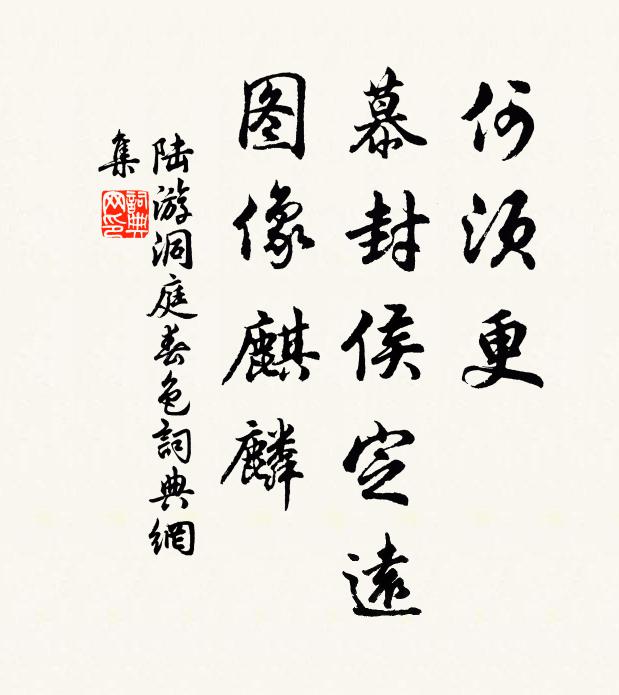 何须更
慕封侯定遠
图像麒麟
陆游洞庭春色詞典網
集
詞典
网印